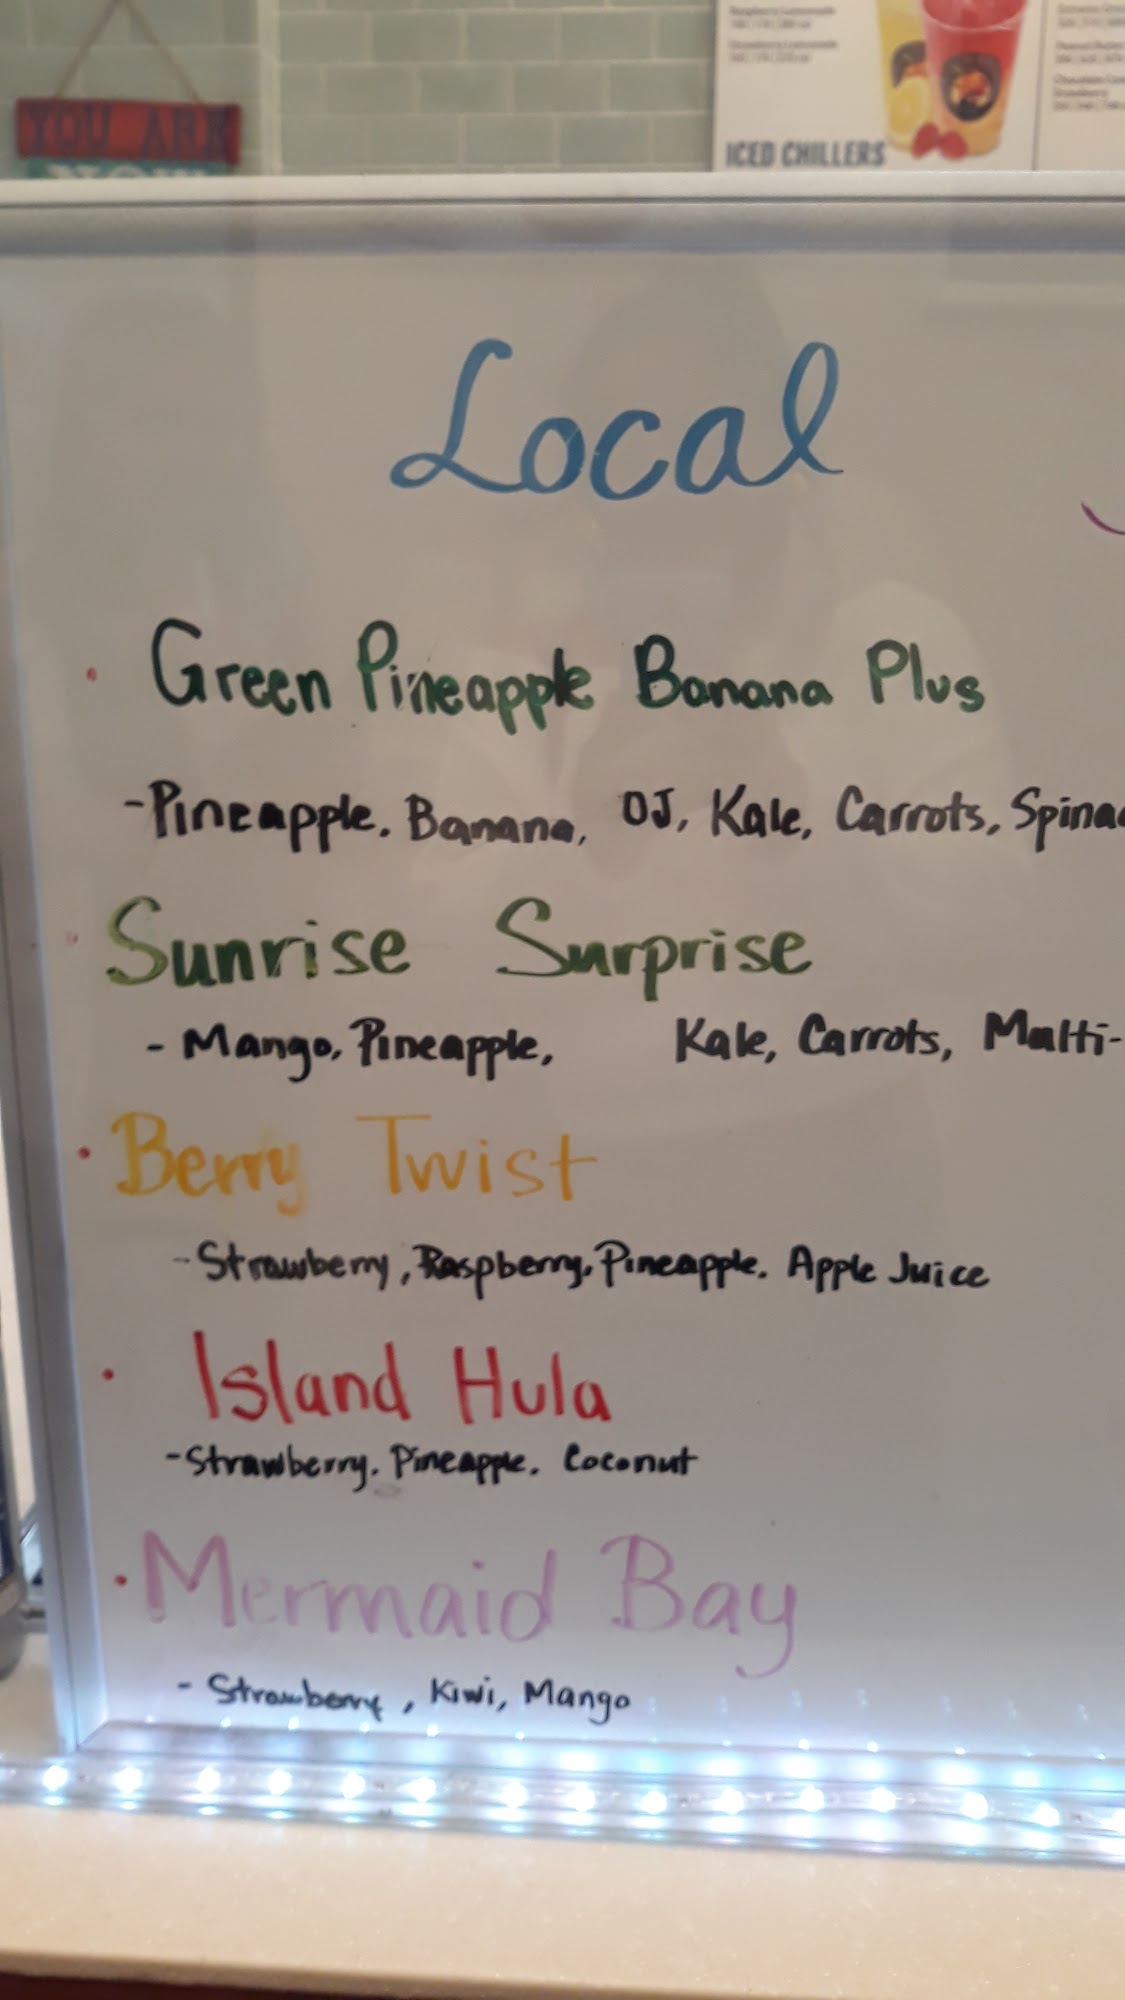 YOU ARE
NOW
Raspberry Lemonade
Strawberry Lemonade
ICED CHILLERS
Local
Green Pineapple Banana Plus
-Pineapple. Banana, OJ, Kale, Carrots, Spinac
Sunrise Surprise
- Mango, Pineapple, Kale, Carrots, Multi-
Berry Twist
-Strawberry, Raspberry, Pineapple. Apple Juice
Island Hula
-Strawberry. Pineapple. Coconut
Mermaid Bay
- Strawberry, Kiwi, Mango